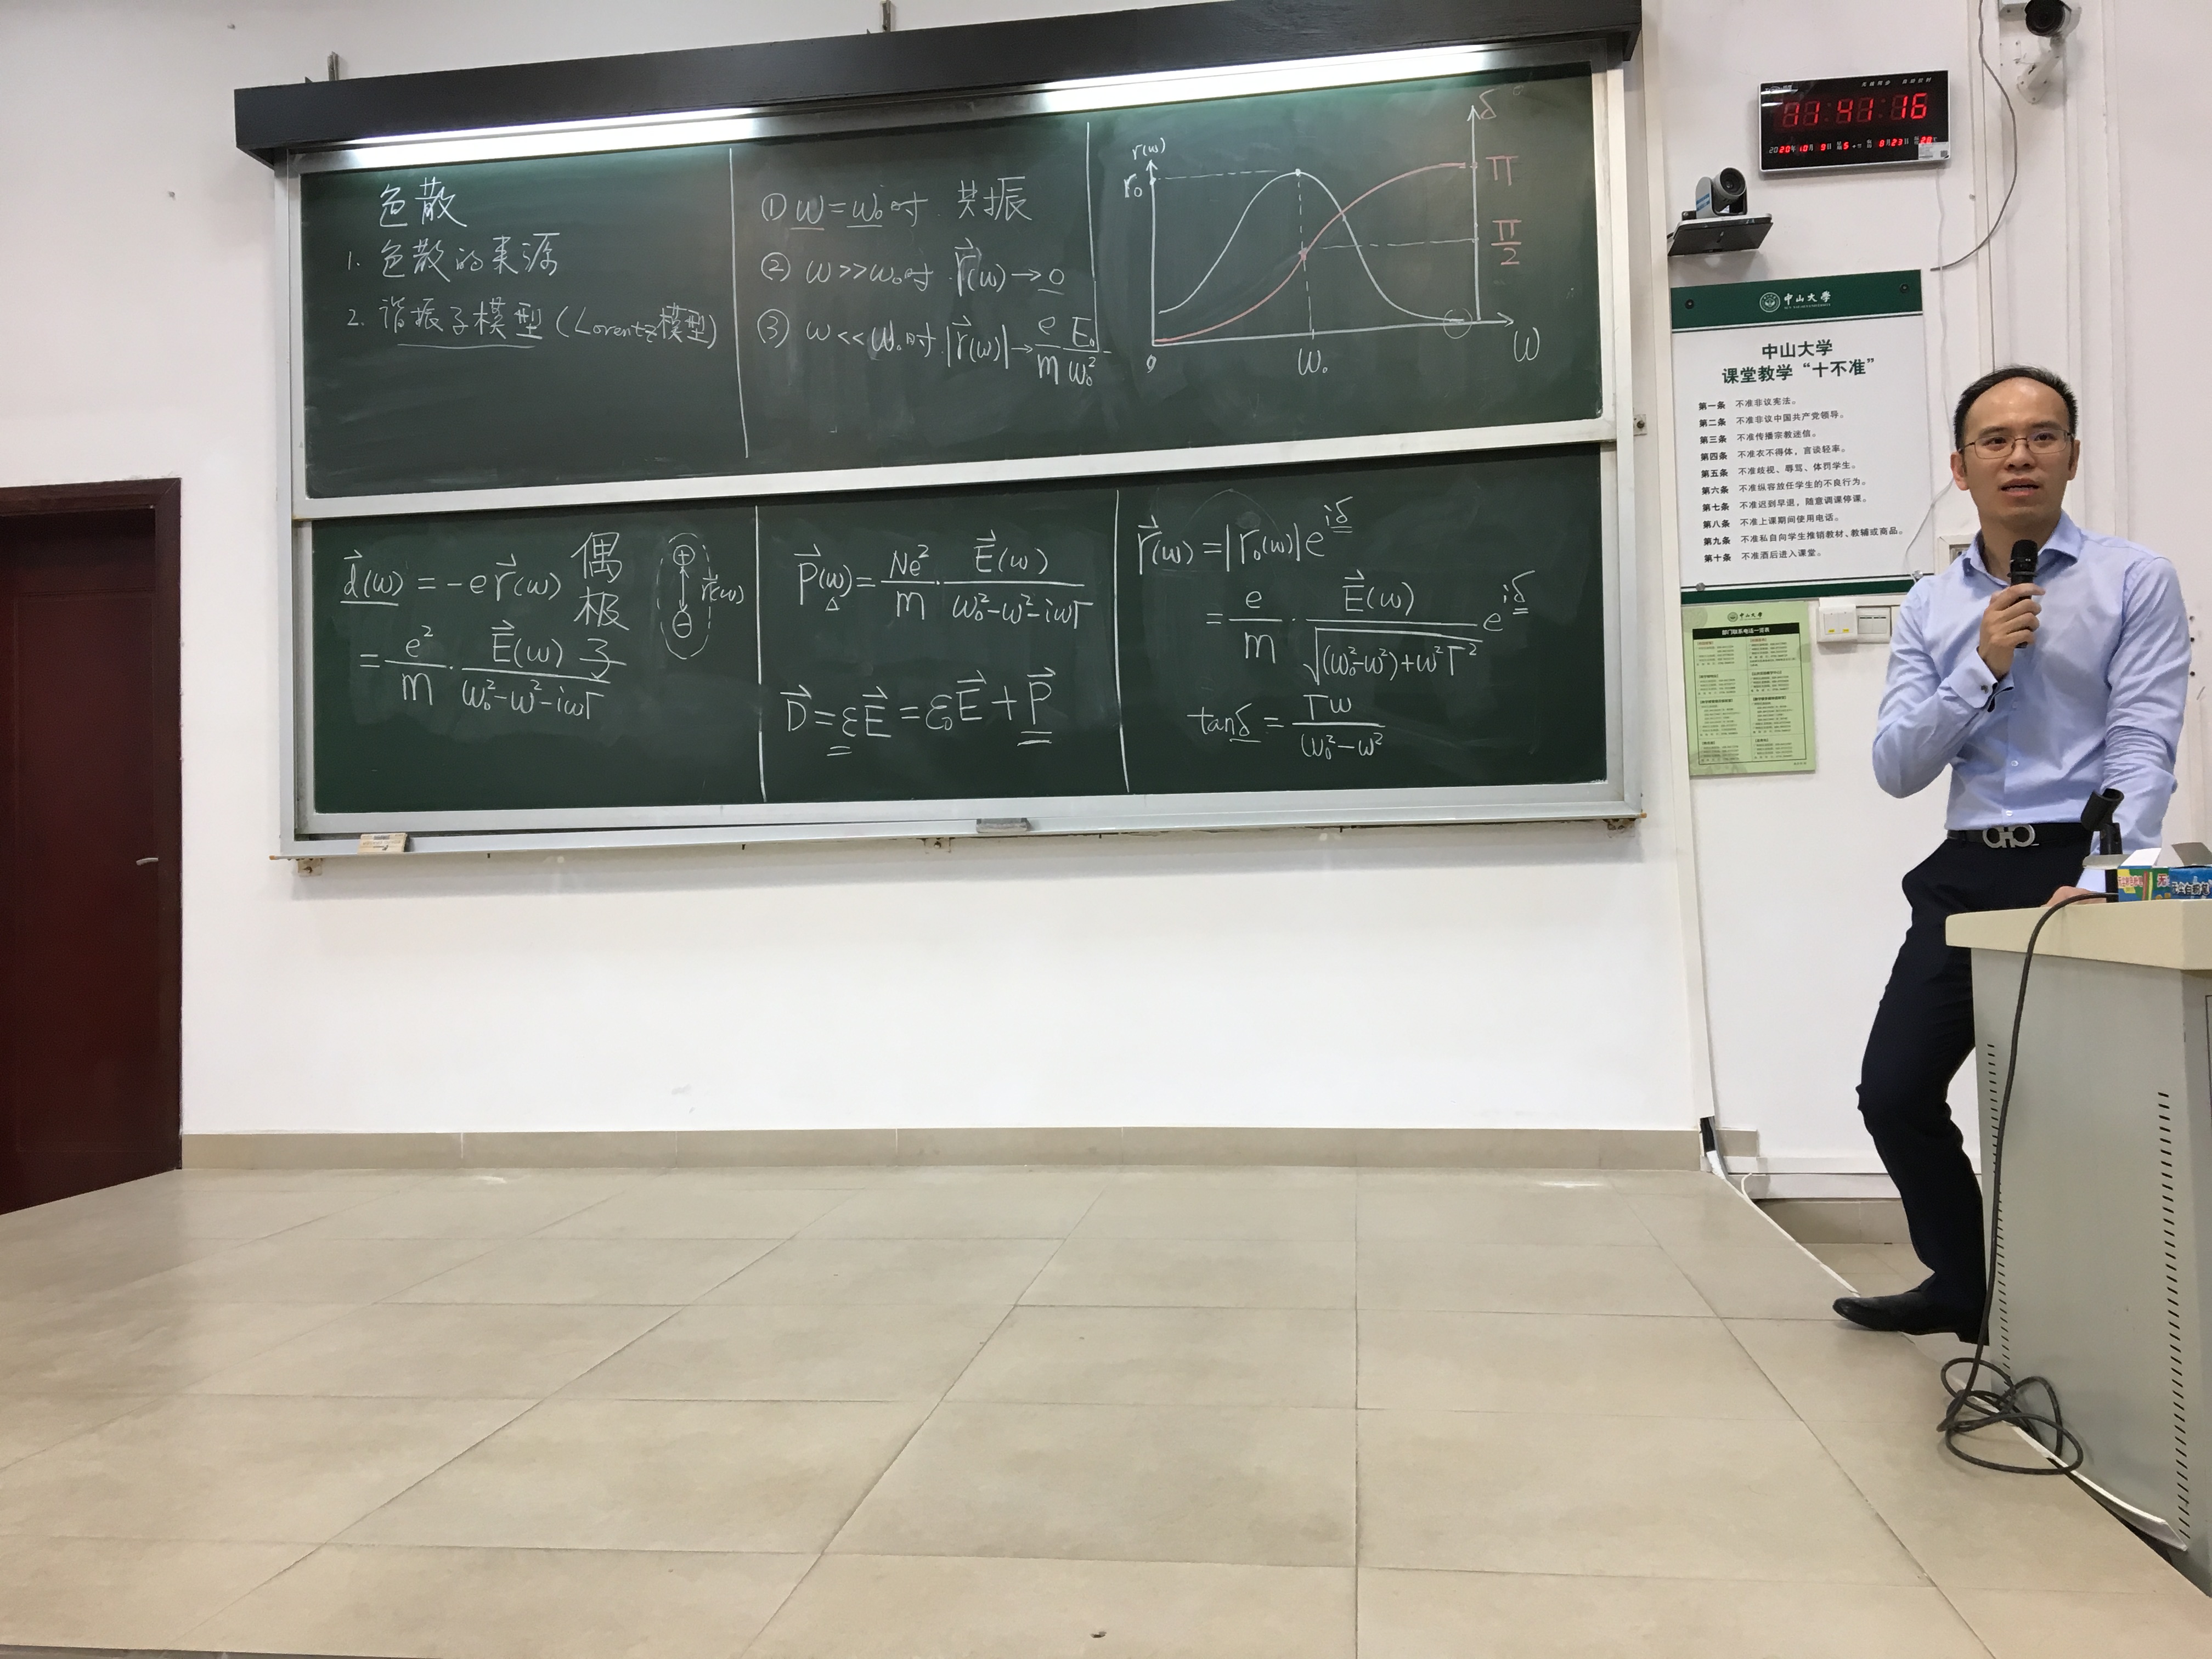 色散
1. 色散的来源
2. 谐振子模型(Lorentz模型)
① ω=ω₀时 共振
② ω>>ω₀时 r⃗(ω)→0
③ ω<<ω₀时 |r⃗(ω)|→e/m E₀/ω₀²
r(ω)
r₀
δ
π
π/2
0
ω₀
ω
d⃗(ω) = -e r⃗(ω) 偶极子
= e²/m · E⃗(ω)/(ω₀²-ω²-iωΓ)
⊕
⊖
r⃗(ω)
P⃗(ω) = Ne²/m · E⃗(ω)/(ω₀²-ω²-iωΓ)
D⃗ = εE⃗ = ε₀E⃗ + P⃗
r⃗(ω) = |r₀(ω)|e^{iδ}
= e/m · E⃗(ω)/√((ω₀²-ω²)+ω²Γ²) e^{iδ}
tanδ = Γω/(ω₀²-ω²)
11:41:16
2020年10月 9日 星期5 农历 8月23日
中山大学
中山大学
课堂教学“十不准”
第一条 不准非议宪法。
第二条 不准非议中国共产党领导。
第三条 不准传播宗教迷信。
第四条 不准衣不得体，言谈轻率。
第五条 不准歧视、辱骂、体罚学生。
第六条 不准纵容放任学生的不良行为。
第七条 不准迟到早退，随意调课停课。
第八条 不准上课期间使用电话。
第九条 不准私自向学生推销教材、教辅或商品。
第十条 不准酒后进入课堂。
中山大学
部门联系电话一览表